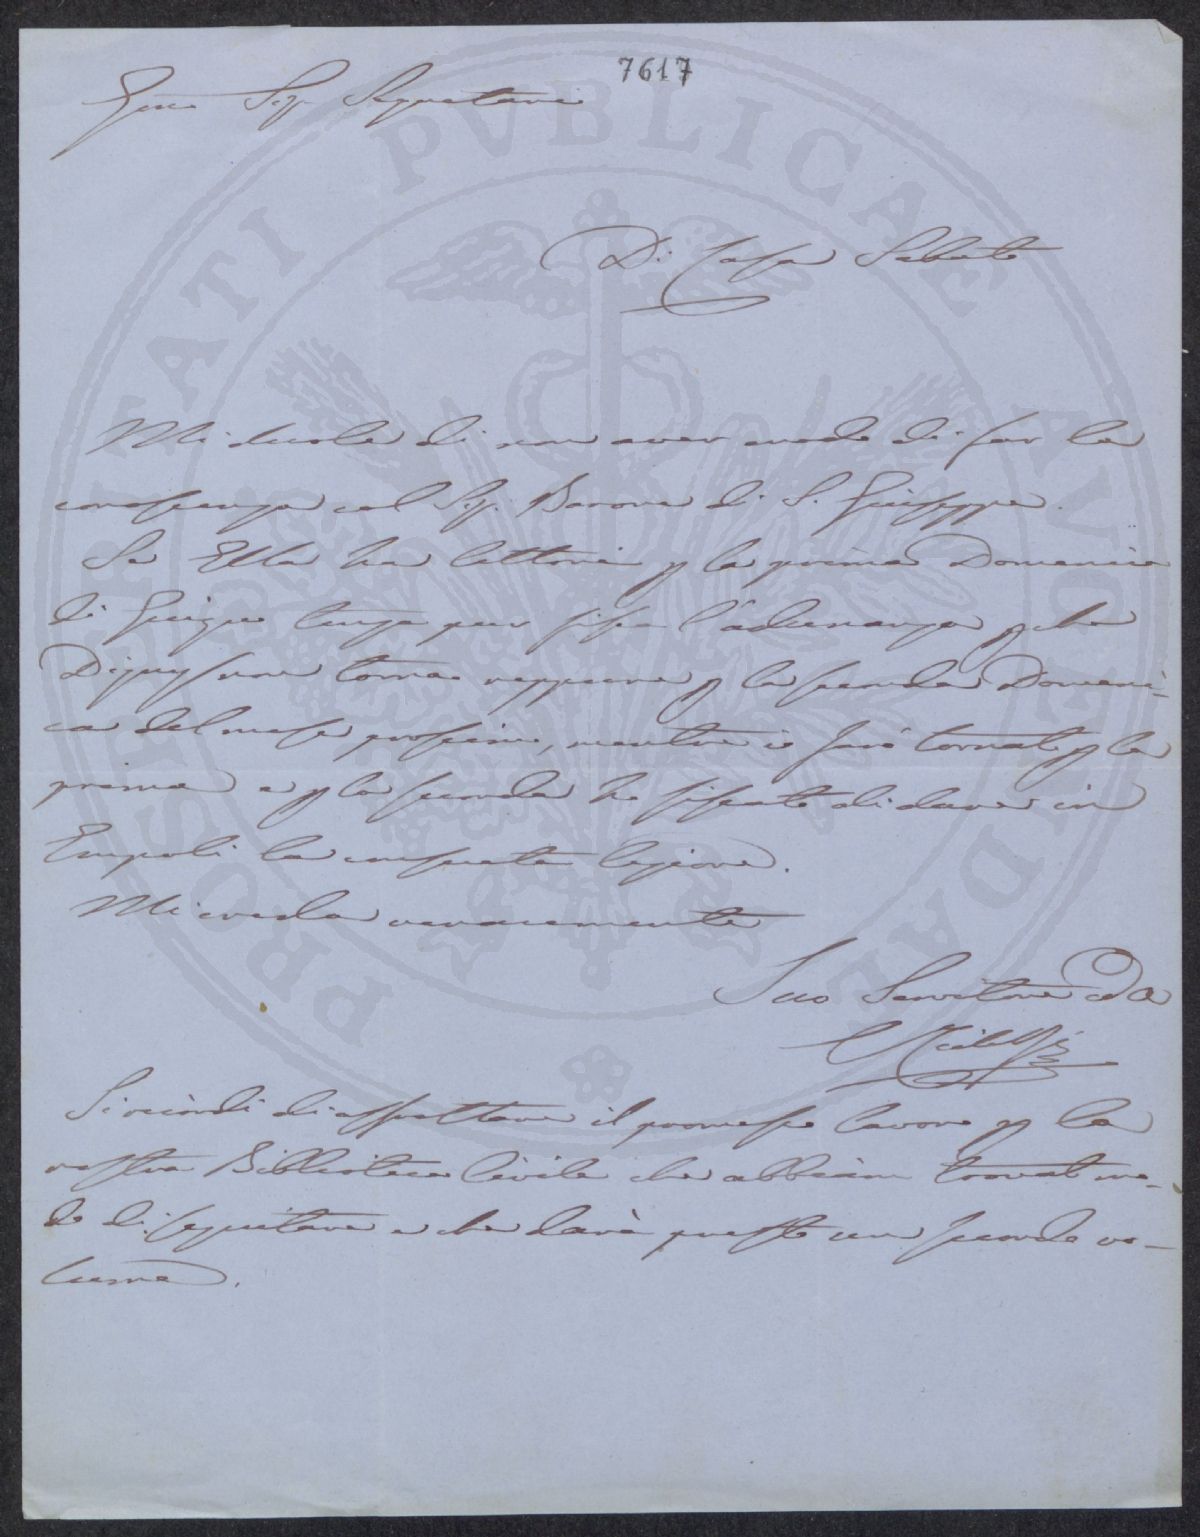 7617
Sig. Segretario
Di Casa Sabato
Mi duole di non aver modo di far la
conoscenza col Sig. Barone di S. Giuseppe.
Se Ella ha lettori p la prima Domenica
di Giugno tenga pur fissa l'adunanza, p che
non torna neppure p la seconda Domeni-
ca del mese prossimo, mentre io sarò tornato p la
prima e p la seconda ho fissato di dare in
Empoli la consueta lezione.
Mi creda veracemente
Suo Servitore ed A
Si ricordi di aspettare il promesso lavoro p la
nostra Biblioteca Civile che abbiam trovat mo-
do di seguitare e che darà presto un secondo vo-
lume.
PROSPERITATI PVBLICAE AVGENDAE